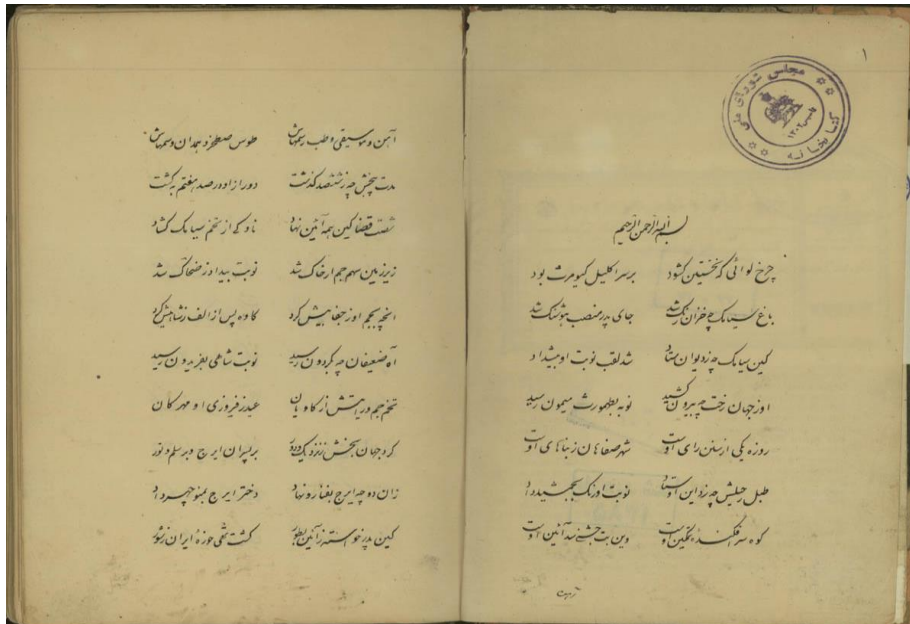 ۱
کتابخانه مجلس شورای ملی
بسم الله الرحمن الرحیم
چرخ لوائی که نخستین کشود بر سر اکلیل کیومرث بود
باغ سیامک چه خزان شد جای پدر منصب هوشنگ شد
کین سیامک چه ز دیوان ستاد شد لقب نوبت او پیشداد
او ز جهان رخت چه بیرون کشید نوبه بطهمورث میمون رسید
روزه یکی از سنن رای اوست شهر صفاهان ز بناهای اوست
طبل رحیلش چه زد این اوستاد نوبت اورنک بجمشید داد
کوه سر افکنده تمکین اوست وین بت جشنی شد آئین اوست
آهن و موسیقی و طب طوس صطخر و همدان و
مدت چه ز ششصد گذشت دور از او در صد هفتم بگشت
شصت قضا کین همه آئین نهاد ناوکه از تخم سیامک کشاد
زیر زمین سهم جم ار خاک شد نوبت بیداد ز ضحاک شد
انچه بجم او ز جفا پیش کرد کاوه پس از الف ز شاهیش کرد
آه ضعیفان چه بگردون رسید نوبت شاهی بفریدون رسید
تخم جم در از کاویان عید ز فیروزی او مهرکان
کرد جهان بخش ز نزدیک و دور بر پسران ایرج و بر سلم و تور
زان دو چه ایرج رو نهاد دختر ایرج بمنوچهر داد
کین پدر خواسته ز آئین بطور کشت تهی حوزه ایران